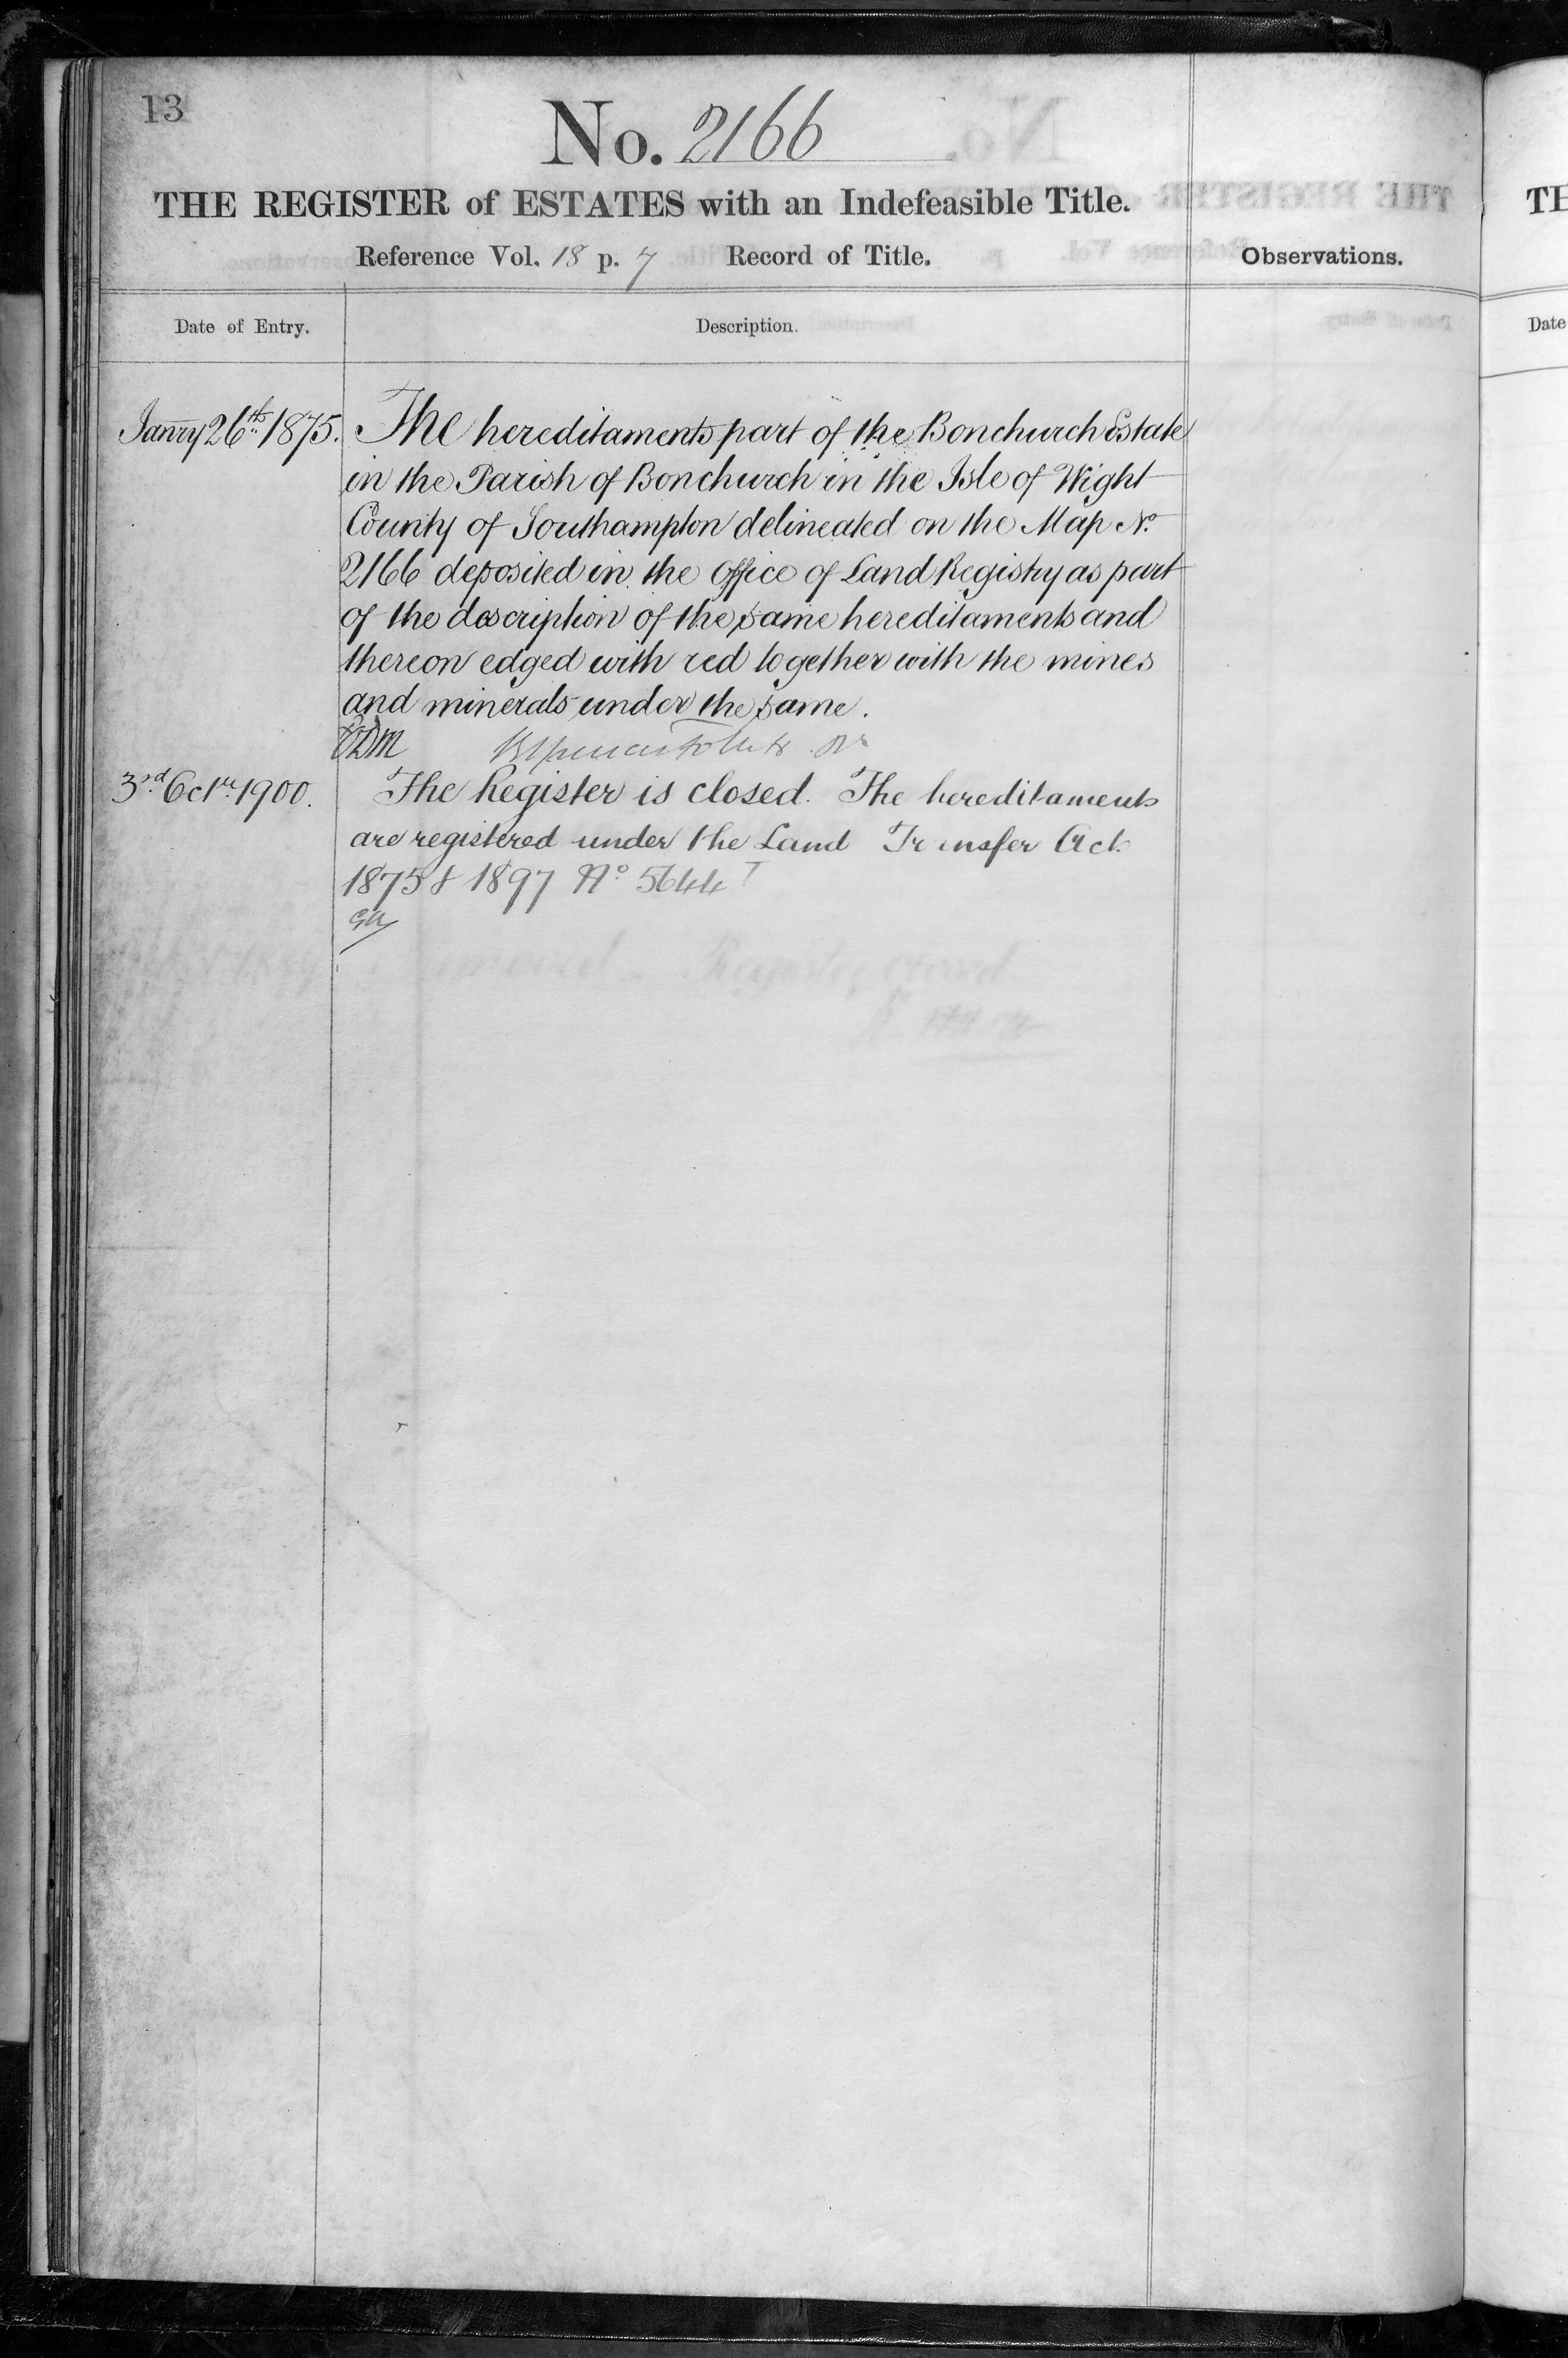 13
No. 2166
THE REGISTER of ESTATES with an Indefeasible Title.
Reference Vol. 18 p. 7 Record of Title.
Observations.
Date of Entry.
Description.
Janry 26th 1875. The hereditaments part of the Bonchurch Estate
in the Parish of Bonchurch in the Isle of Wight
County of Southampton delineated on the Map No.
2166 deposited in the Office of Land Registry as part
of the description of the same hereditaments and
thereon edged with red together with the mines
and minerals under the same.
3rd Octr. 1900. The Register is closed. The hereditaments
are registered under the Land Transfer Acts
1875 & 1897 No 5644
TH
Date